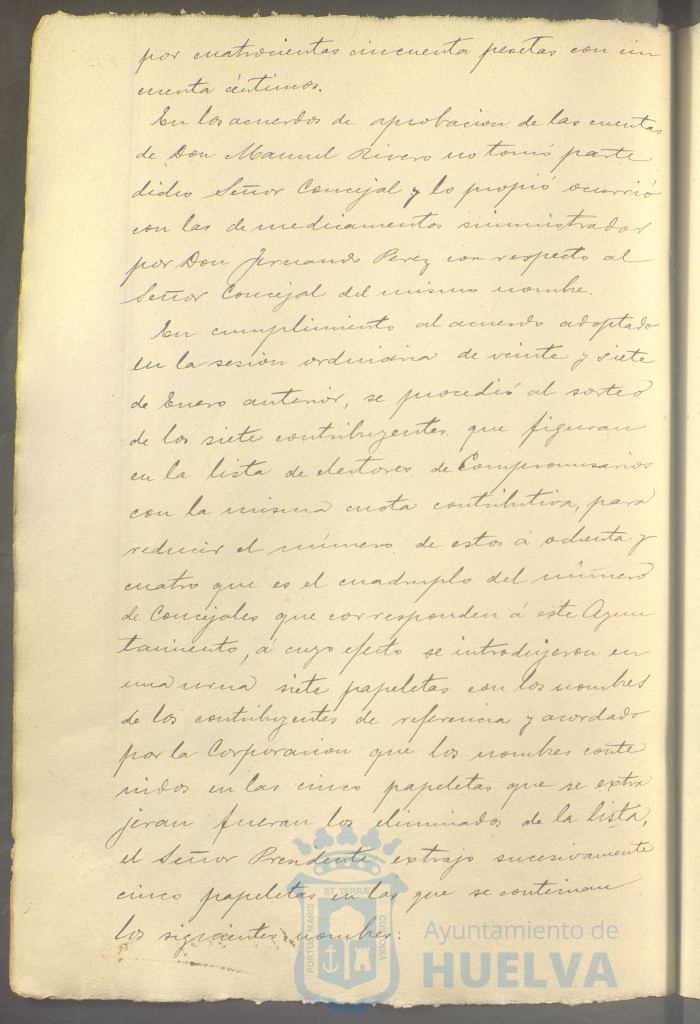 por cuatrocientas cincuenta pesetas con cin
cuenta céntimos.
En los acuerdos de aprobacion de las cuentas
de Don Manuel Rivero no tomó parte
dicho Señor Concejal y lo propio ocurrió
con las de medicamentos suministrados
por Don Fernando Perez con respecto al
Señor Concejal del mismo nombre.
En cumplimiento al acuerdo adoptado
en la sesion ordinaria de veinte y siete
de Enero anterior, se procedió al sorteo
de los siete contribuyentes que figuran
en la lista de electores de Compromisarios
con la misma cuota contributiva, para
reducir el número de estos á ochenta y
cuatro que es el cuadruplo del número
de Concejales que corresponden á este Ayun
tamiento, á cuyo efecto se introdujeron en
una urna siete papeletas con los nombres
de los contribuyentes de referencia y acordado
por la Corporacion que los nombres conte
nidos en las cinco papeletas que se extra
jeran fueran los eliminados de la lista,
el Señor Presidente extrajo sucesivamente
cinco papeletas en las que se contenian
los siguientes nombres:
PORTUS MARIS
ET TERRÆ
CUSTODIA
Ayuntamiento de
HUELVA